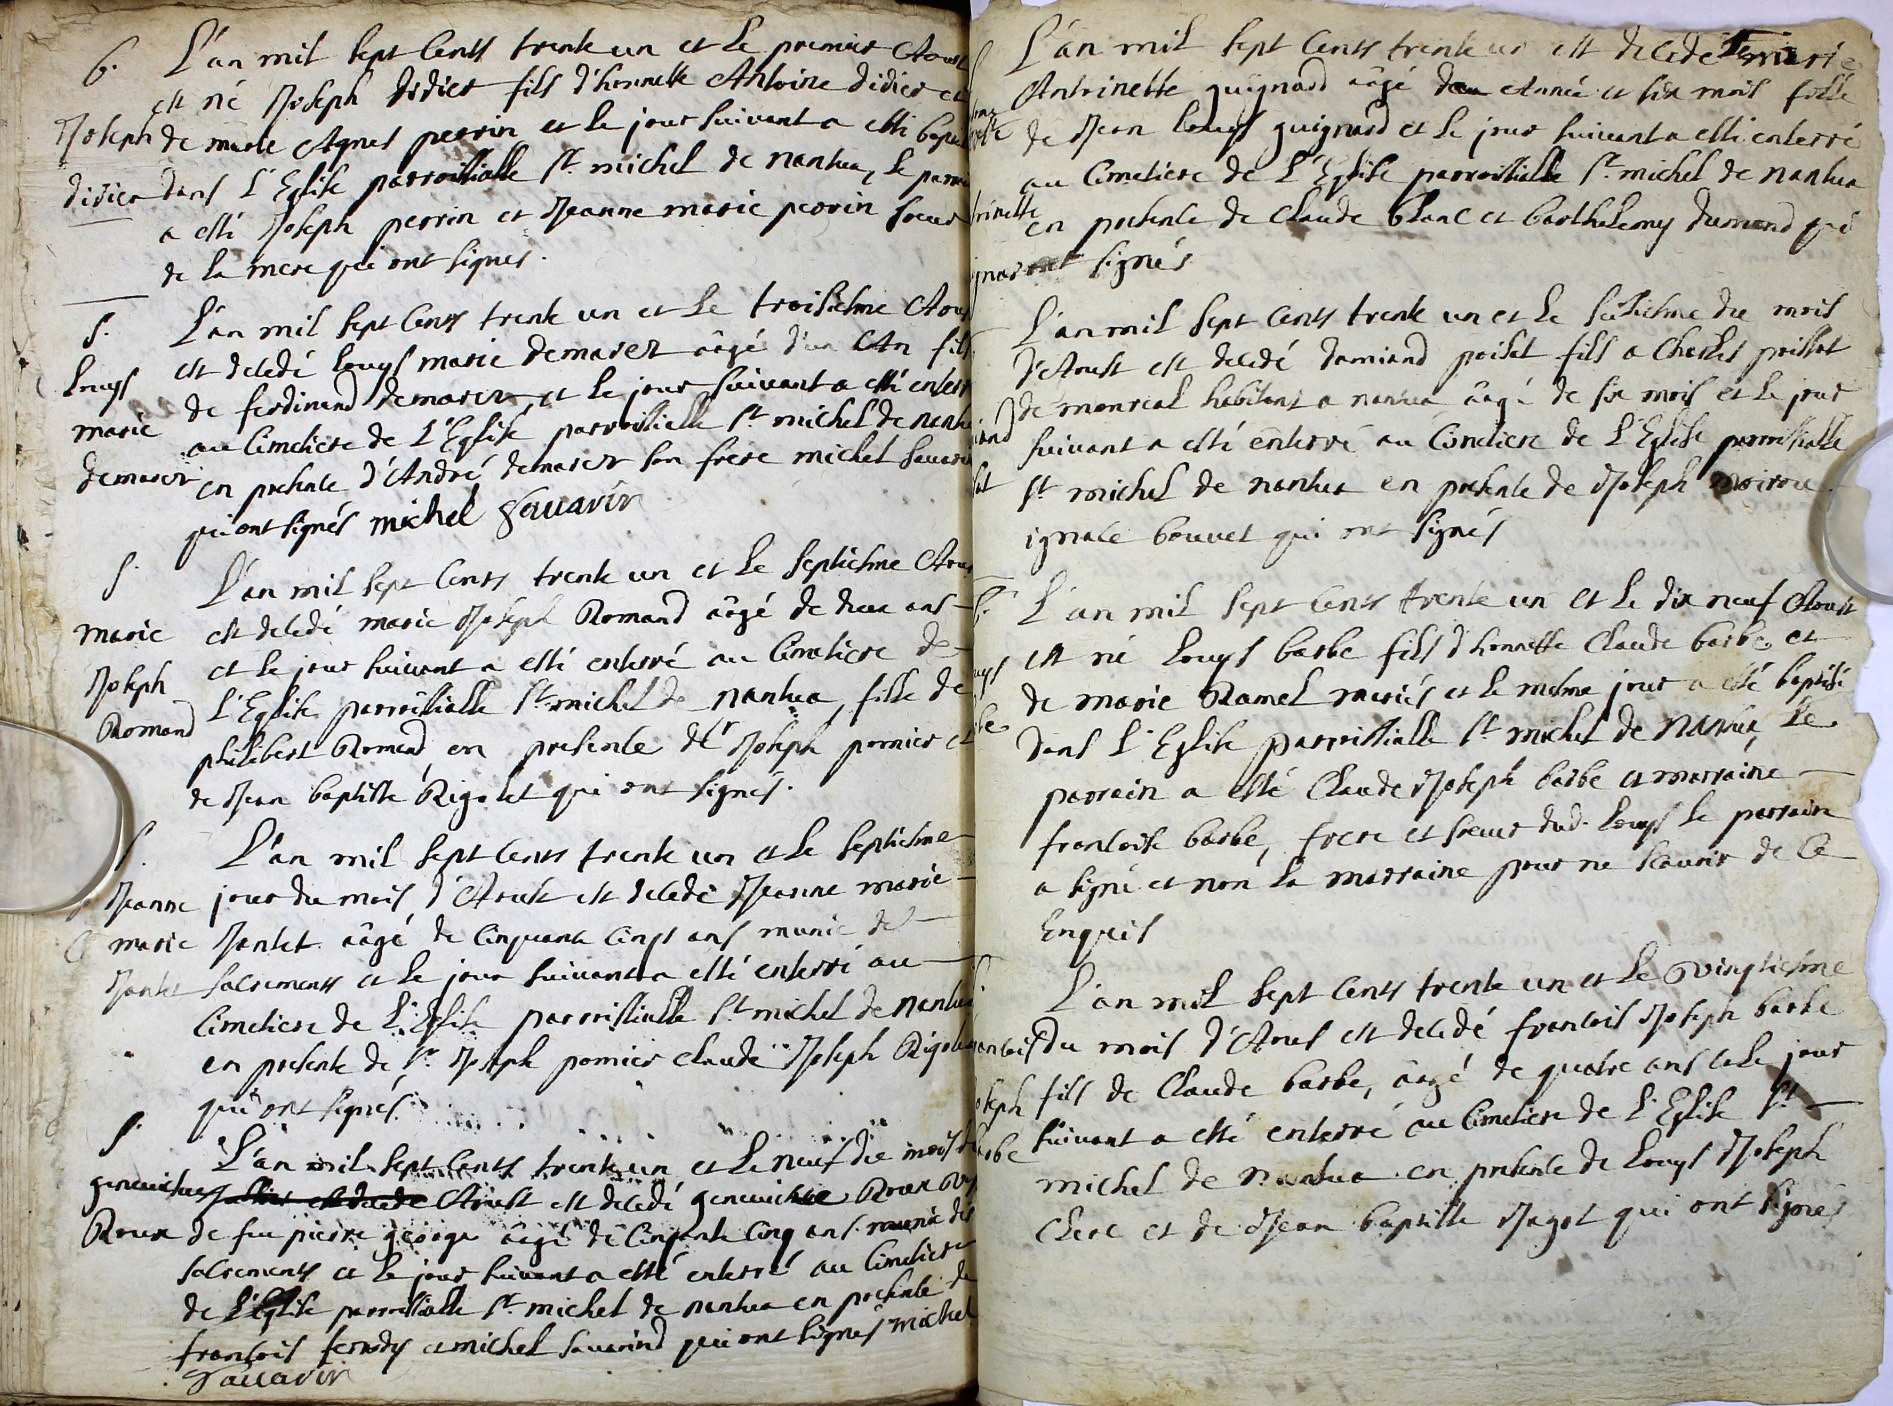 b. L'an mil sept cents trente un et le premier Aoust
est né Joseph didier fils d'honneste Antoine didier et
Joseph de marie Agnes perrin et le jour suivant a esté baptisé
didier dans l'Eglise parroissialle st. michel de nantua, le parrain
a esté Joseph perrin et Jeanne marie perrin soeur
de la mere qui ont signes.
S. L'an mil sept cents trente un et le troisiesme Aoust
est decedé Louys marie demarer aagé d'un An fils
Louys de ferdinand demarer et le jour suivant a esté enterré
marie au Cimetiere de l'Eglise parroissialle st. michel de nantua
demarer en presence d'André demarer son frere michel Sauarin
qui ont signés michel Sauarin
S. L'an mil sept cents trente un et le septiesme Aoust
marie est decedé marie Joseph Romand aagé de deux ans
Joseph et le jour suivant a esté enterré au Cimetiere de
Romand l'Eglise parroissialle st. michel de nantua, fille de
philibert Romand en presence de sr Joseph pornier et
de Jean baptiste Rigolet qui ont signés.
S. L'an mil sept cents trente un et le septiesme
Jeanne jour du mois d'Aoust est decedé Jeanne marie
marie Jantet aagé de cinquante cinq ans munie des
Jantet sacrements et le jour suivant a esté enterré au
Cimetiere de l'Eglise parroissialle st. michel de nantua
en presence de sr. Joseph pornier claude Joseph Rigolet
qui ont signés.
S. L'an mil sept cents trente un et le neuf du mois d
genevieve Aoust est decedé genevieve Roux
Roux de feu pierre george aagé de cinquante cinq ans munie des
sacrements et le jour suivant a esté enterré au Cimetiere
de l'Eglise parroissialle st. michel de nantua en presence de
francois et michel Sauarind qui ont signés michel
Sauarin
L'an mil sept cents trente un est decedé marie
Antoinette guignard aagé d'un Année et six mois fille
de Jean Louys guignard et le jour suivant a esté enterré
au Cimetiere de l'Eglise parroissialle st. michel de nantua
en presence de Claude blanc et barthelemy dumond qui
ont signés
L'an mil sept cents trente un et le seiziesme du mois
d'Aoust est decedé damiand poiset fils a Charles poisset
de monreal habitant a nantua aagé de six mois et le jour
suivant a esté enterré au Cimetiere de l'Eglise parroissialle
st michel de nantua en presence de Joseph
ignace bouvet qui ont signés
b. L'an mil sept cents trente un et le dix neuf Aoust
est né Louys barbe fils d'honneste Claude barbe et
de marie Ramel mariés et le mesme jour a esté baptisé
dans l'Eglise parroissialle st michel de nantua, le
parrain a esté Claude Joseph barbe et marraine
francoise barbe, frere et soeur dud. Louys le parrain
a signé et non la marraine pour ne scavoir de ce
Enquis
L'an mil sept cents trente un et le vingtiesme
du mois d'Aous est decedé francois Joseph barbe
Joseph fils de Claude barbe, aagé de quatre ans et le jour
barbe suivant a esté enterré au Cimetiere de l'Eglise st
michel de nantua en presence de Louys Joseph
Clerc et de Jean baptiste Jagot qui ont signés